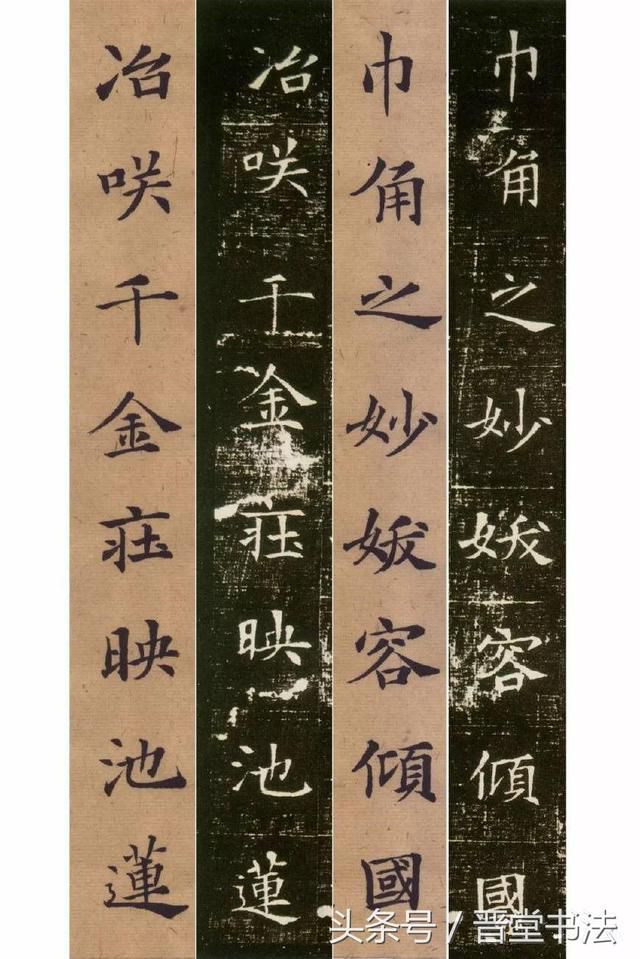 巾角之妙妖容傾國
巾角之妙妖容傾國
冶咲千金庄映池蓮
冶咲千金庄映池蓮
头条号 / 晋堂书法